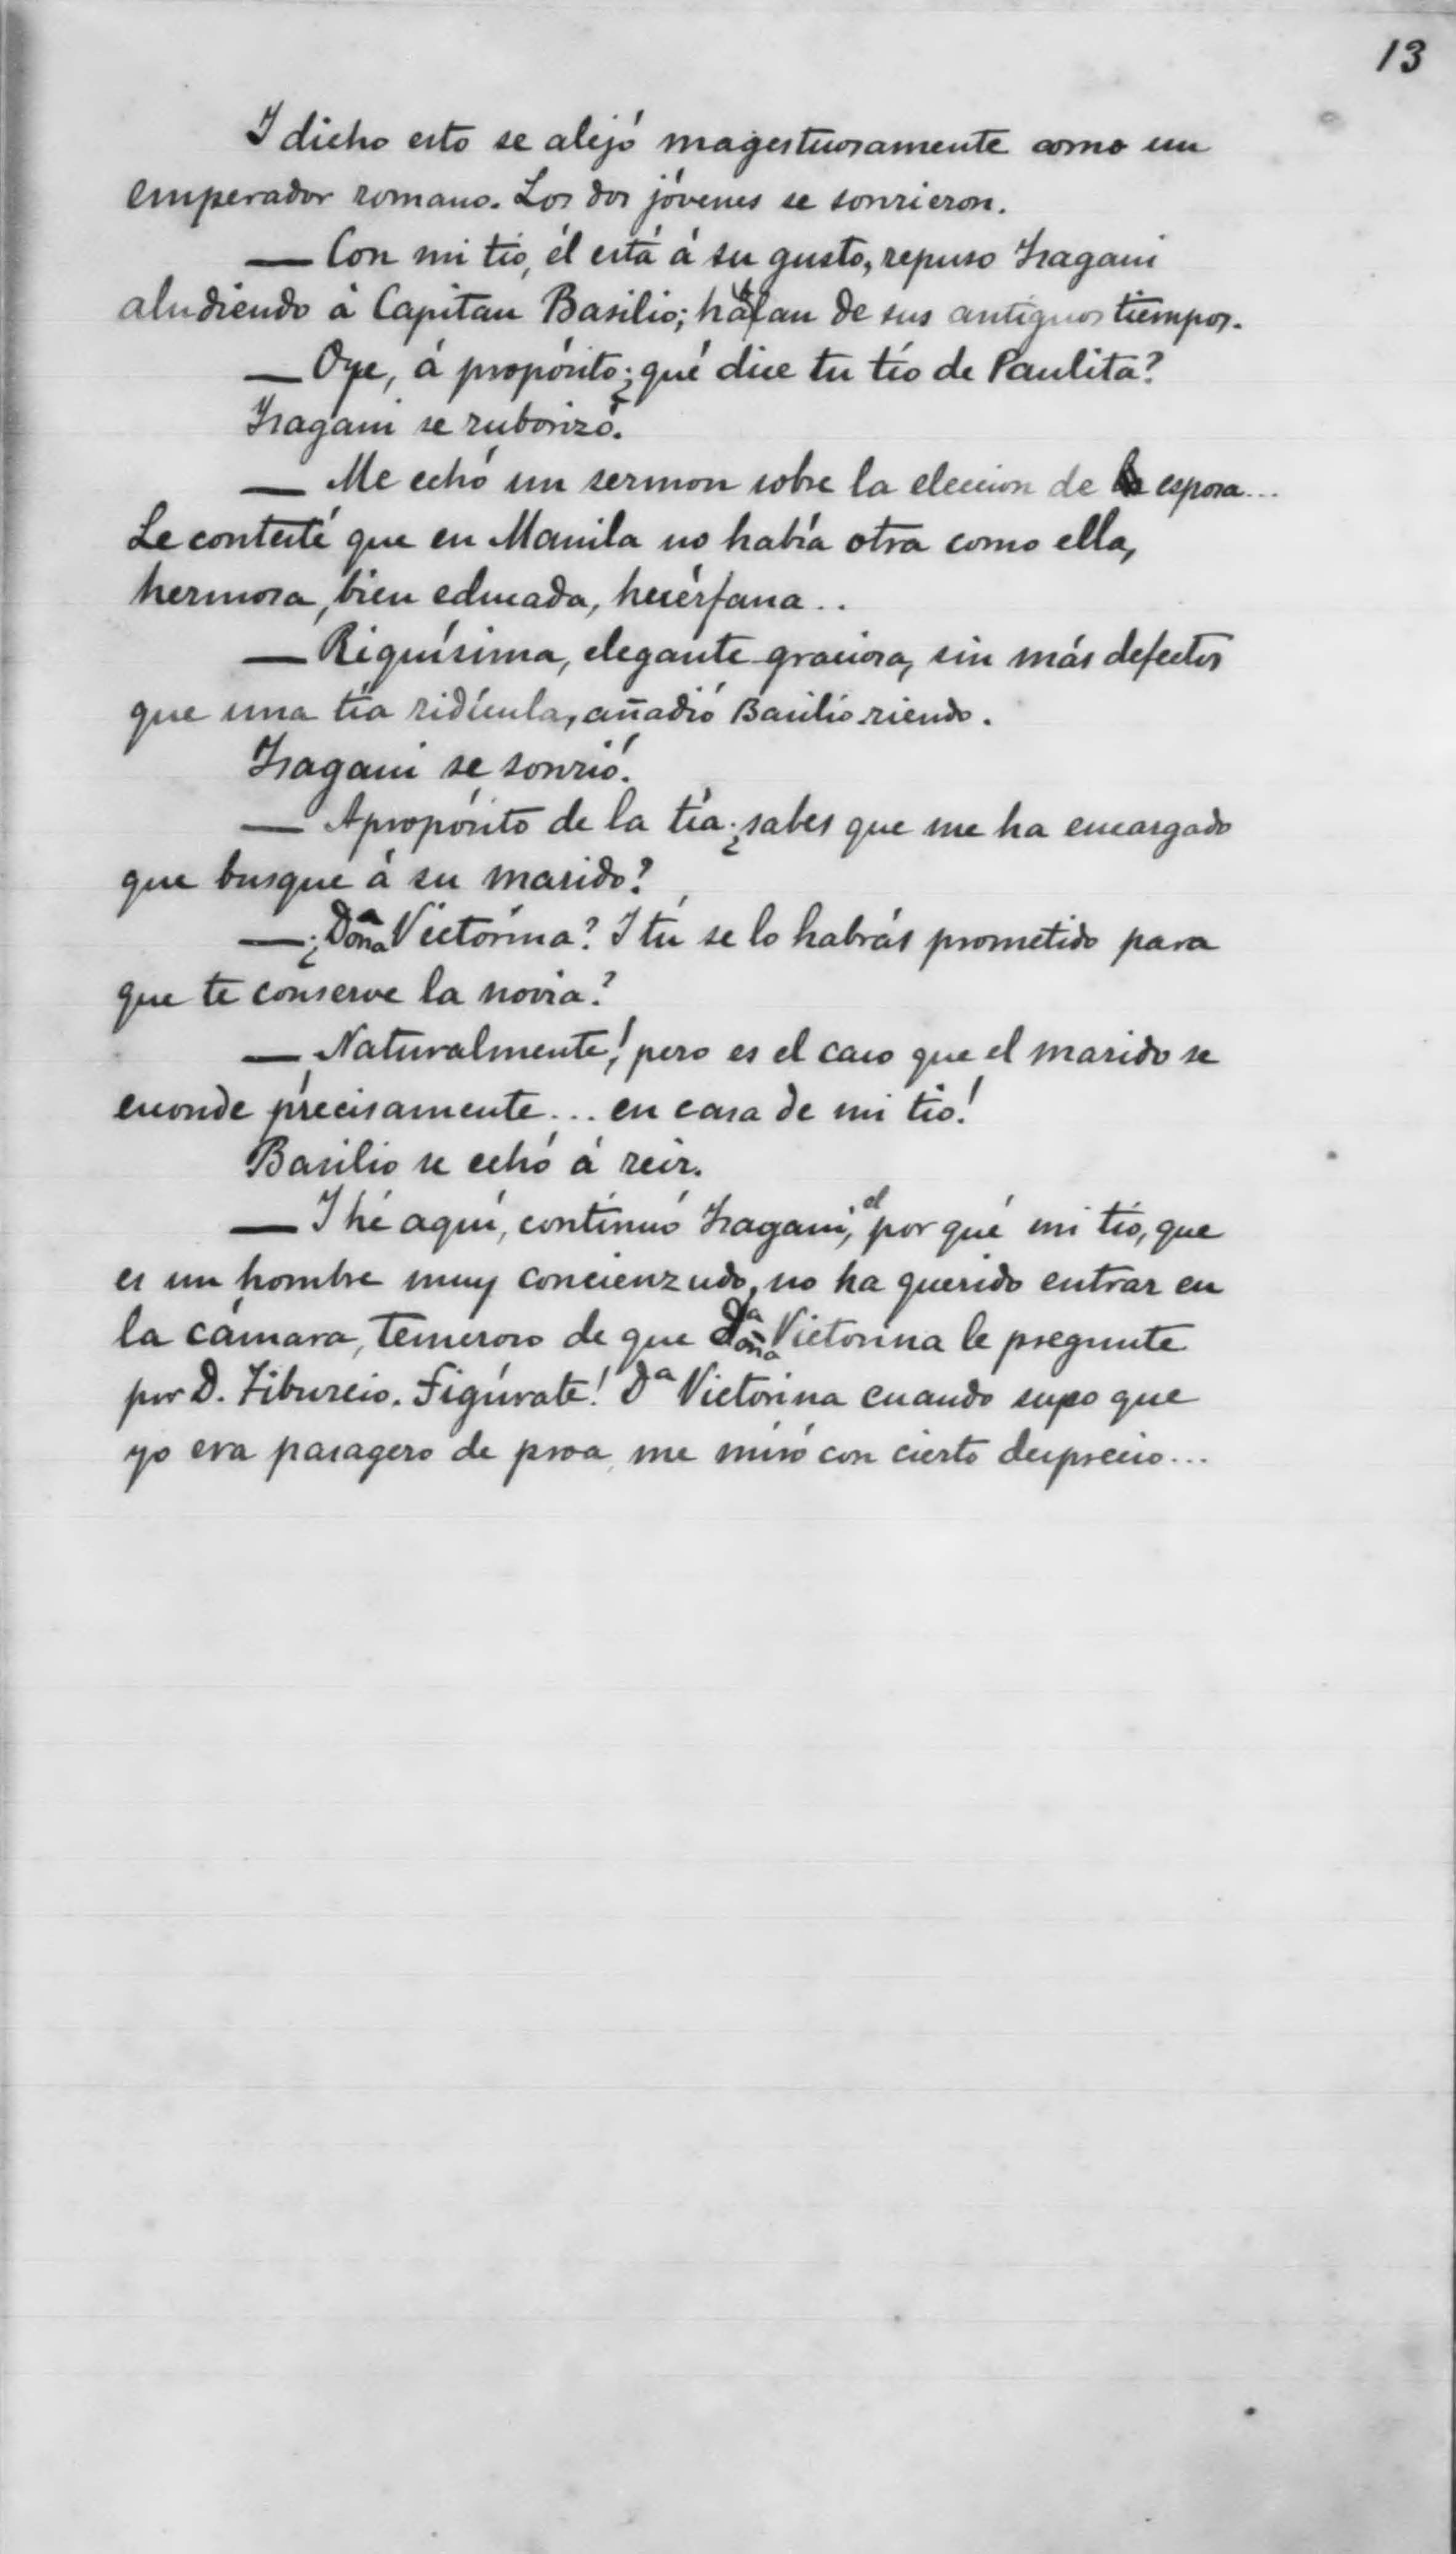 13
Y dicho esto se alejó magestuosamente como un
emperador romano. Los dos jóvenes se sonrieron.
— Con mi tío, él está á su gusto, repuso Isagani
aludiendo á Capitan Basilio; hablan de sus antiguos tiempos.
— Oye, á propósito; ¿qué dice tu tío de Paulita?
Isagani se ruborizó.
— Me echó un sermon sobre la eleccion de esposa...
Le contesté que en Manila no había otra como ella,
hermosa, bien educada, huérfana..
— Riquísima, elegante graciosa, sin más defectos
que una tía ridícula, añadió Basilio riendo.
Isagani se sonrió.
— Apropósito de la tía ¿sabes que me ha encargado
que busque á su marido?
— ¿Doña Victorina? Y tú se lo habrás prometido para
que te conserve la novia?
— Naturalmente! pero es el caso que el marido se
esconde precisamente... en casa de mi tío!
Basilio se echó á reir.
— Y hé aquí, continuó Isagani, el por qué mi tío, que
es un hombre muy concienzudo, no ha querido entrar en
la cámara, temeroso de que Doña Victorina le pregunte
por D. Tiburcio. Figúrate! Dª Victorina cuando supo que
yo era pasagero de proa, me miró con cierto desprecio...